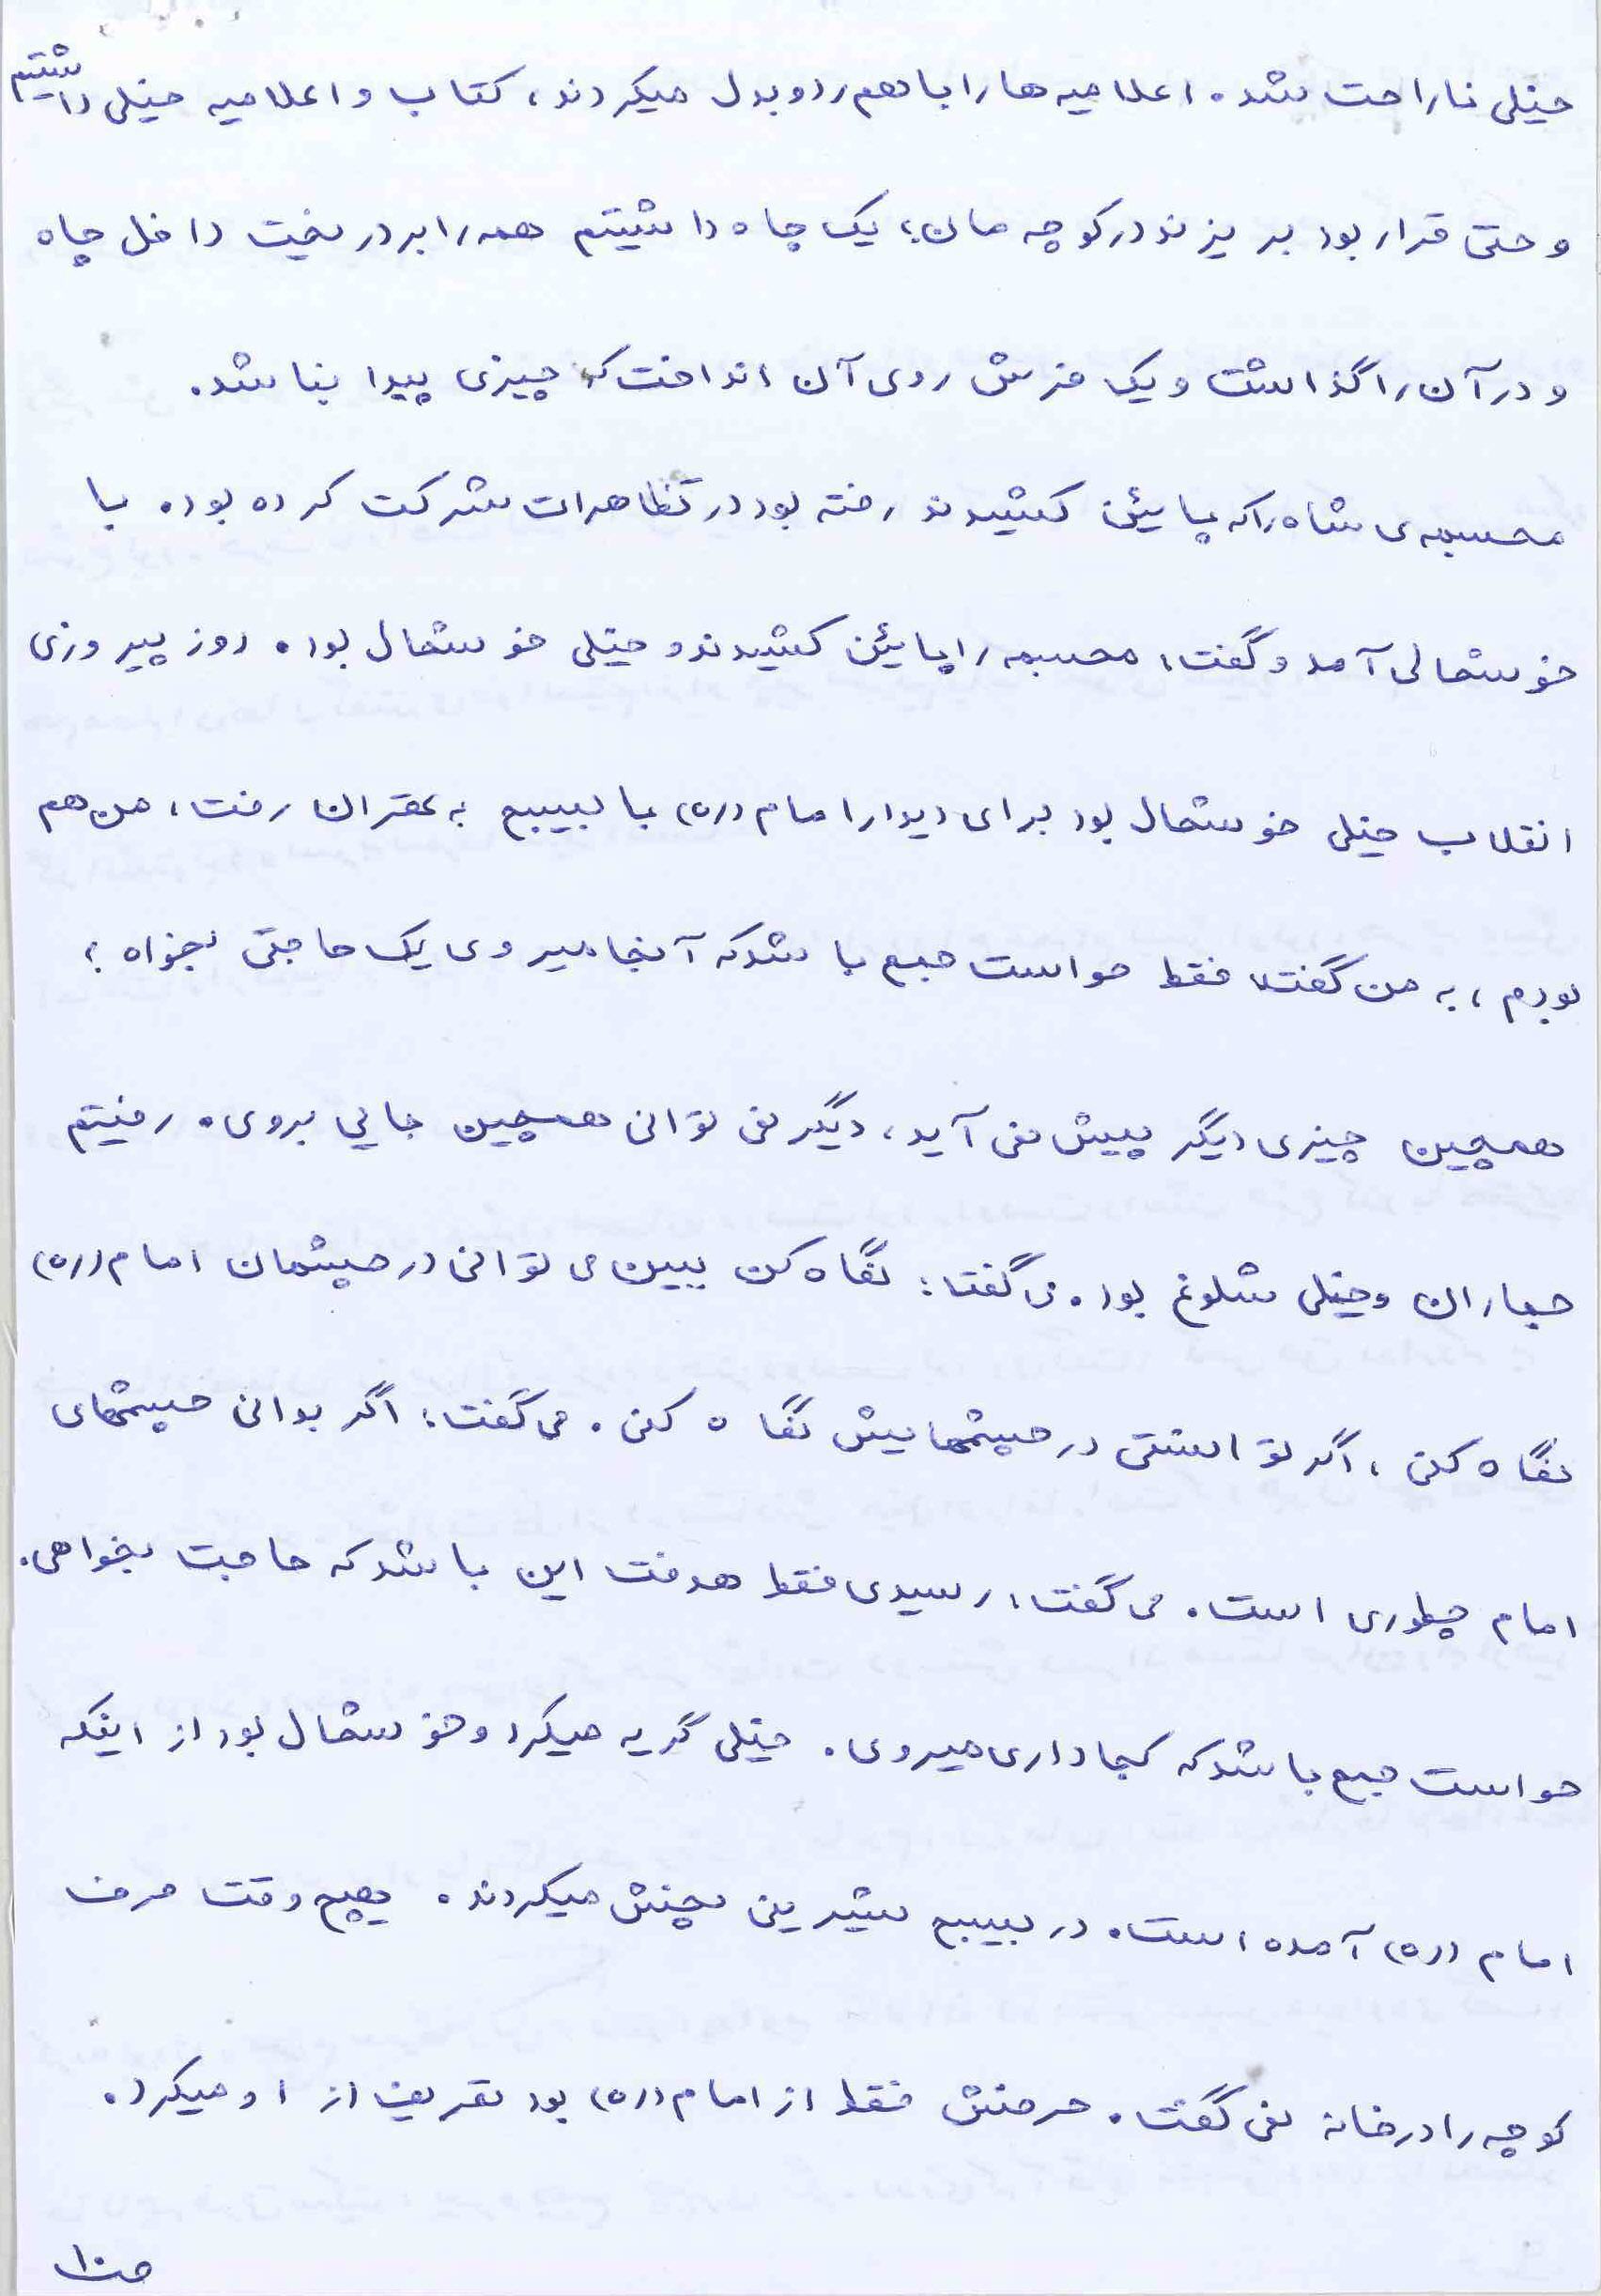 خیلی ناراحت شد. اعلامیه ها را با هم رد و بدل میکردند، کتاب و اعلامیه خیلی داشتیم
و حتی قرار بود بریزند در کوچه مان، یک چاه داشتیم همه را برد ریخت داخل چاه
و در آن را گذاشت و یک فرش روی آن انداخت که چیزی پیدا نباشد.
مجسمه ی شاه را که پایین کشیدند رفته بود در تظاهرات شرکت کرده بود. با
خوشحالی آمد و گفت: مجسمه را پایین کشیدند و خیلی خوشحال بود. روز پیروزی
انقلاب خیلی خوشحال بود برای دیدار امام (ره) با بسیج به تهران رفت، من هم
بودم، به من گفت: فقط حواست جمع باشد که آنجا میروی یک حاجتی بخواه؛
همچین چیزی دیگر پیش نمی آید، دیگر نمی توانی همچین جایی بروی. رفتیم
جماران و خیلی شلوغ بود. می گفت: نگاه کن ببین می توانی در چشمان امام (ره)
نگاه کنی، اگر توانستی در چشمهایش نگاه کنی. می گفت: اگر بدانی چشمهای
امام چطوری است. می گفت: رسیدی فقط هدفت این باشد که حاجت بخواهی.
حواست جمع باشد که کجا داری میروی. خیلی گریه میکرد و خوشحال بود از اینکه
امام (ره) آمده است. در بسیج شیرینی پخش میکردند. هیچ وقت حرف
کوچه را در خانه نمی گفت. حرفش فقط از امام (ره) بود تعریف از او میکرد.
ص۱۰